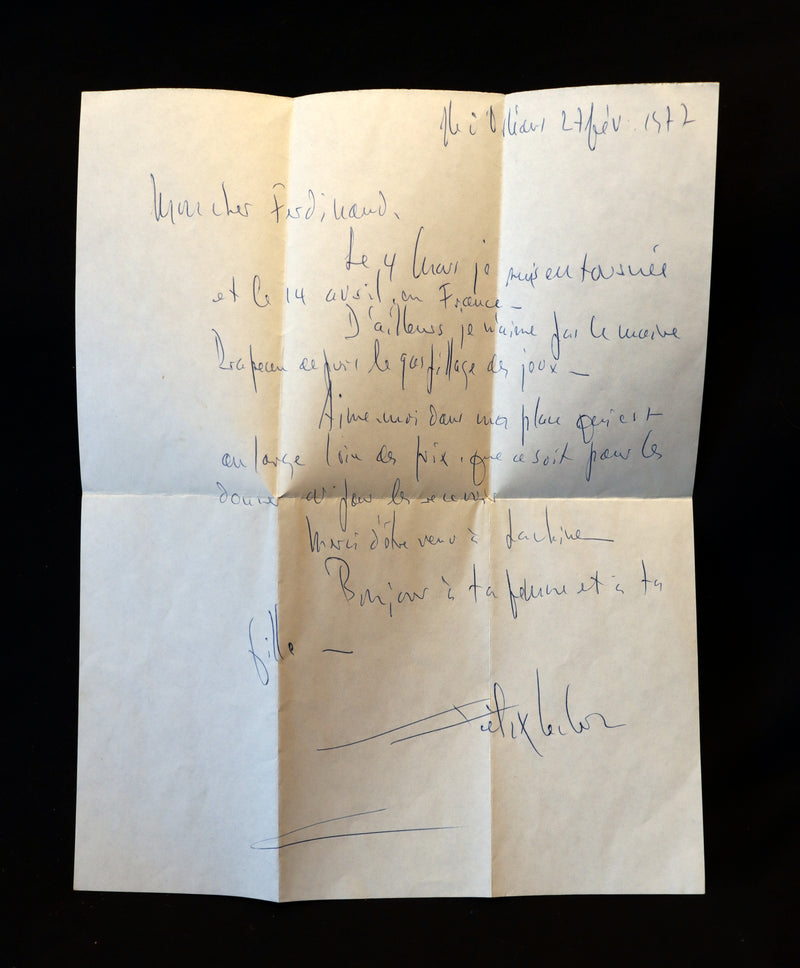 Ile d'Orléans 27 fév. 1977
Mon cher Ferdinand.
Le 4 Mars je suis en tournée
et le 14 avril, en France –
D'ailleurs je n'aime pas le maire
Drapeau depuis le gaspillage des joux –
Aime-moi dans ma plan qui est
au large loin des prix. que ce soit pour les
donner ou pour les recevoir
Merci d'être venu à Lachine
Bonjour à ta femme et à ta
fille –
Félix Leclerc